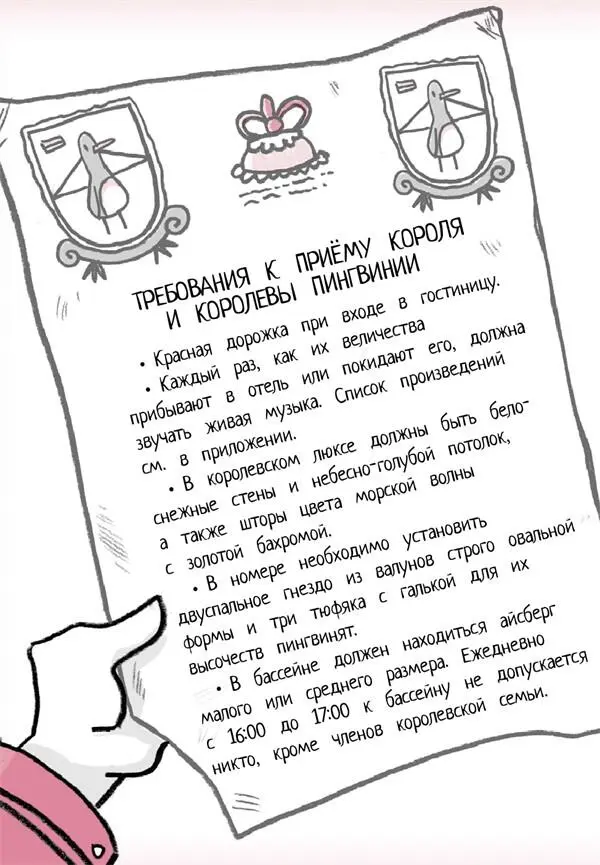 ТРЕБОВАНИЯ К ПРИЁМУ КОРОЛЯ
И КОРОЛЕВЫ ПИНГВИНИИ
• Красная дорожка при входе в гостиницу.
• Каждый раз, как их величества
прибывают в отель или покидают его, должна
звучать живая музыка. Список произведений
см. в приложении.
• В королевском люксе должны быть бело-
снежные стены и небесно-голубой потолок,
а также шторы цвета морской волны
с золотой бахромой.
• В номере необходимо установить
двуспальное гнездо из валунов строго овальной
формы и три тюфяка с галькой для их
высочеств пингвинят.
• В бассейне должен находиться айсберг
малого или среднего размера. Ежедневно
с 16:00 до 17:00 к бассейну не допускается
никто, кроме членов королевской семьи.